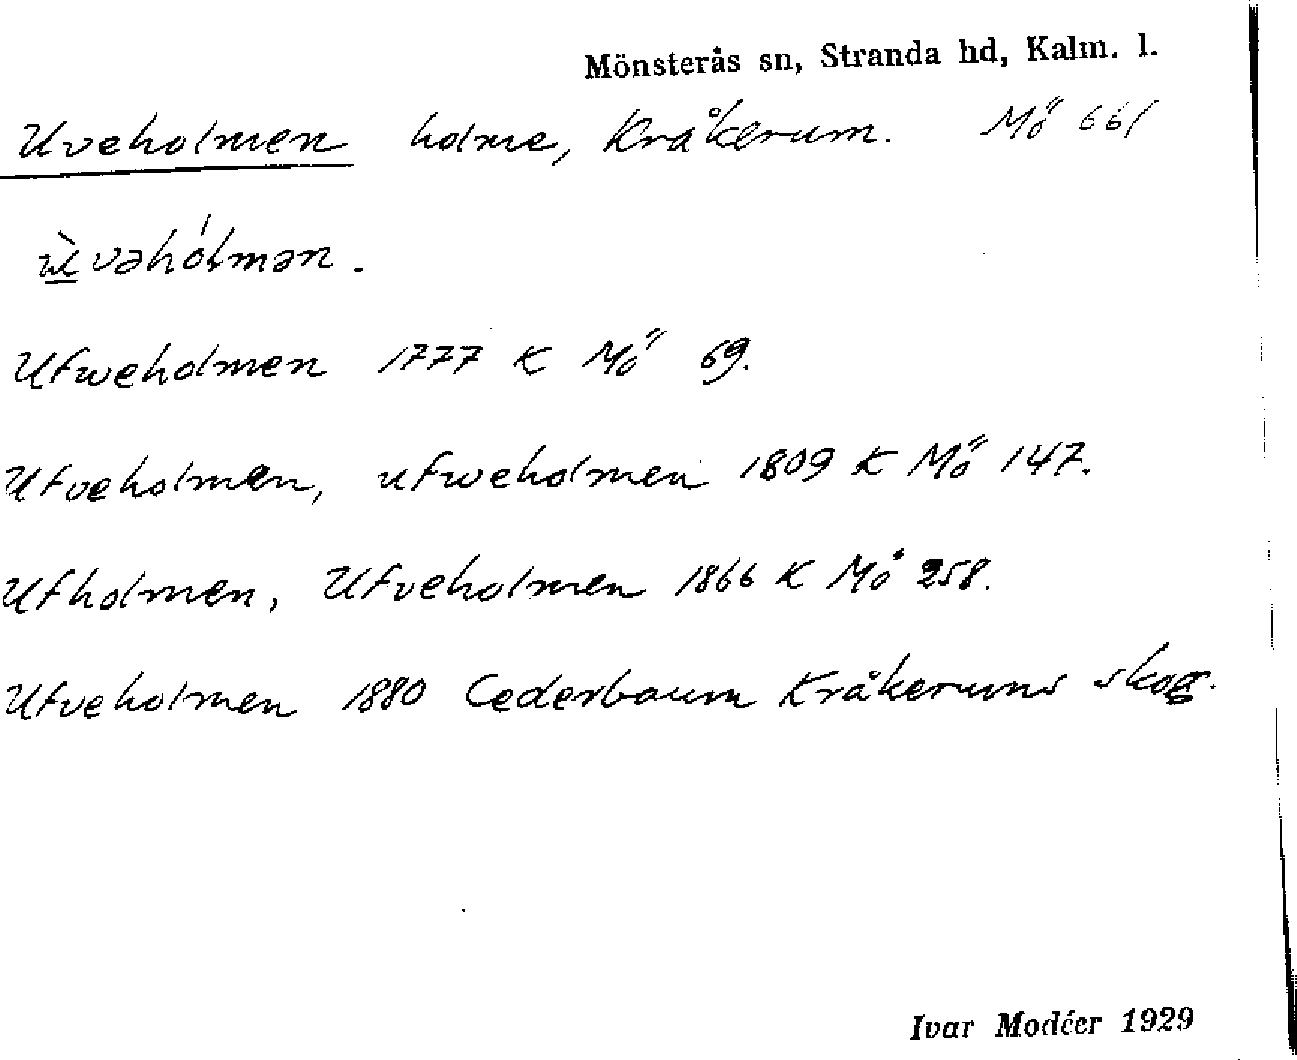 Mönsterås sn, Stranda hd, Kalm. l.
Uveholmen holme, Kråkerum. Mö 661
ùvəhólmən.
Ufweholmen 1777 K Mö 69.
Ufveholmen, ufweholmen 1809 K Mö 147.
Ufholmen, Ufveholmen 1866 K Mö 258.
Ufveholmen 1880 Cederbaum Kråkerums skog.
Ivar Modéer 1929